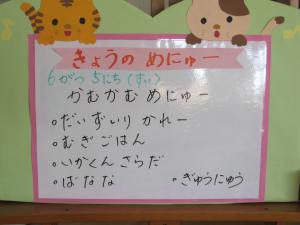 きょうの めにゅー
6がつ 5にち(すい)
かむかむ めにゅー
○だいずいり かれー
○むぎごはん
○いかくん さらだ
○ばなな ○ぎゅうにゅう